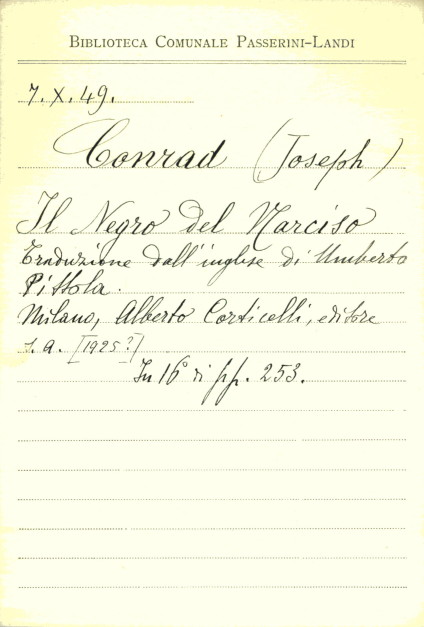 BIBLIOTECA COMUNALE PASSERINI-LANDI
7. X. 49.
Conrad (Joseph)
Il Negro del Narciso
Traduzione dall'inglese di Umberto
Pittola.
Milano, Alberto Corticelli, editore
s. a. [1925?]
In 16° di pp. 253.